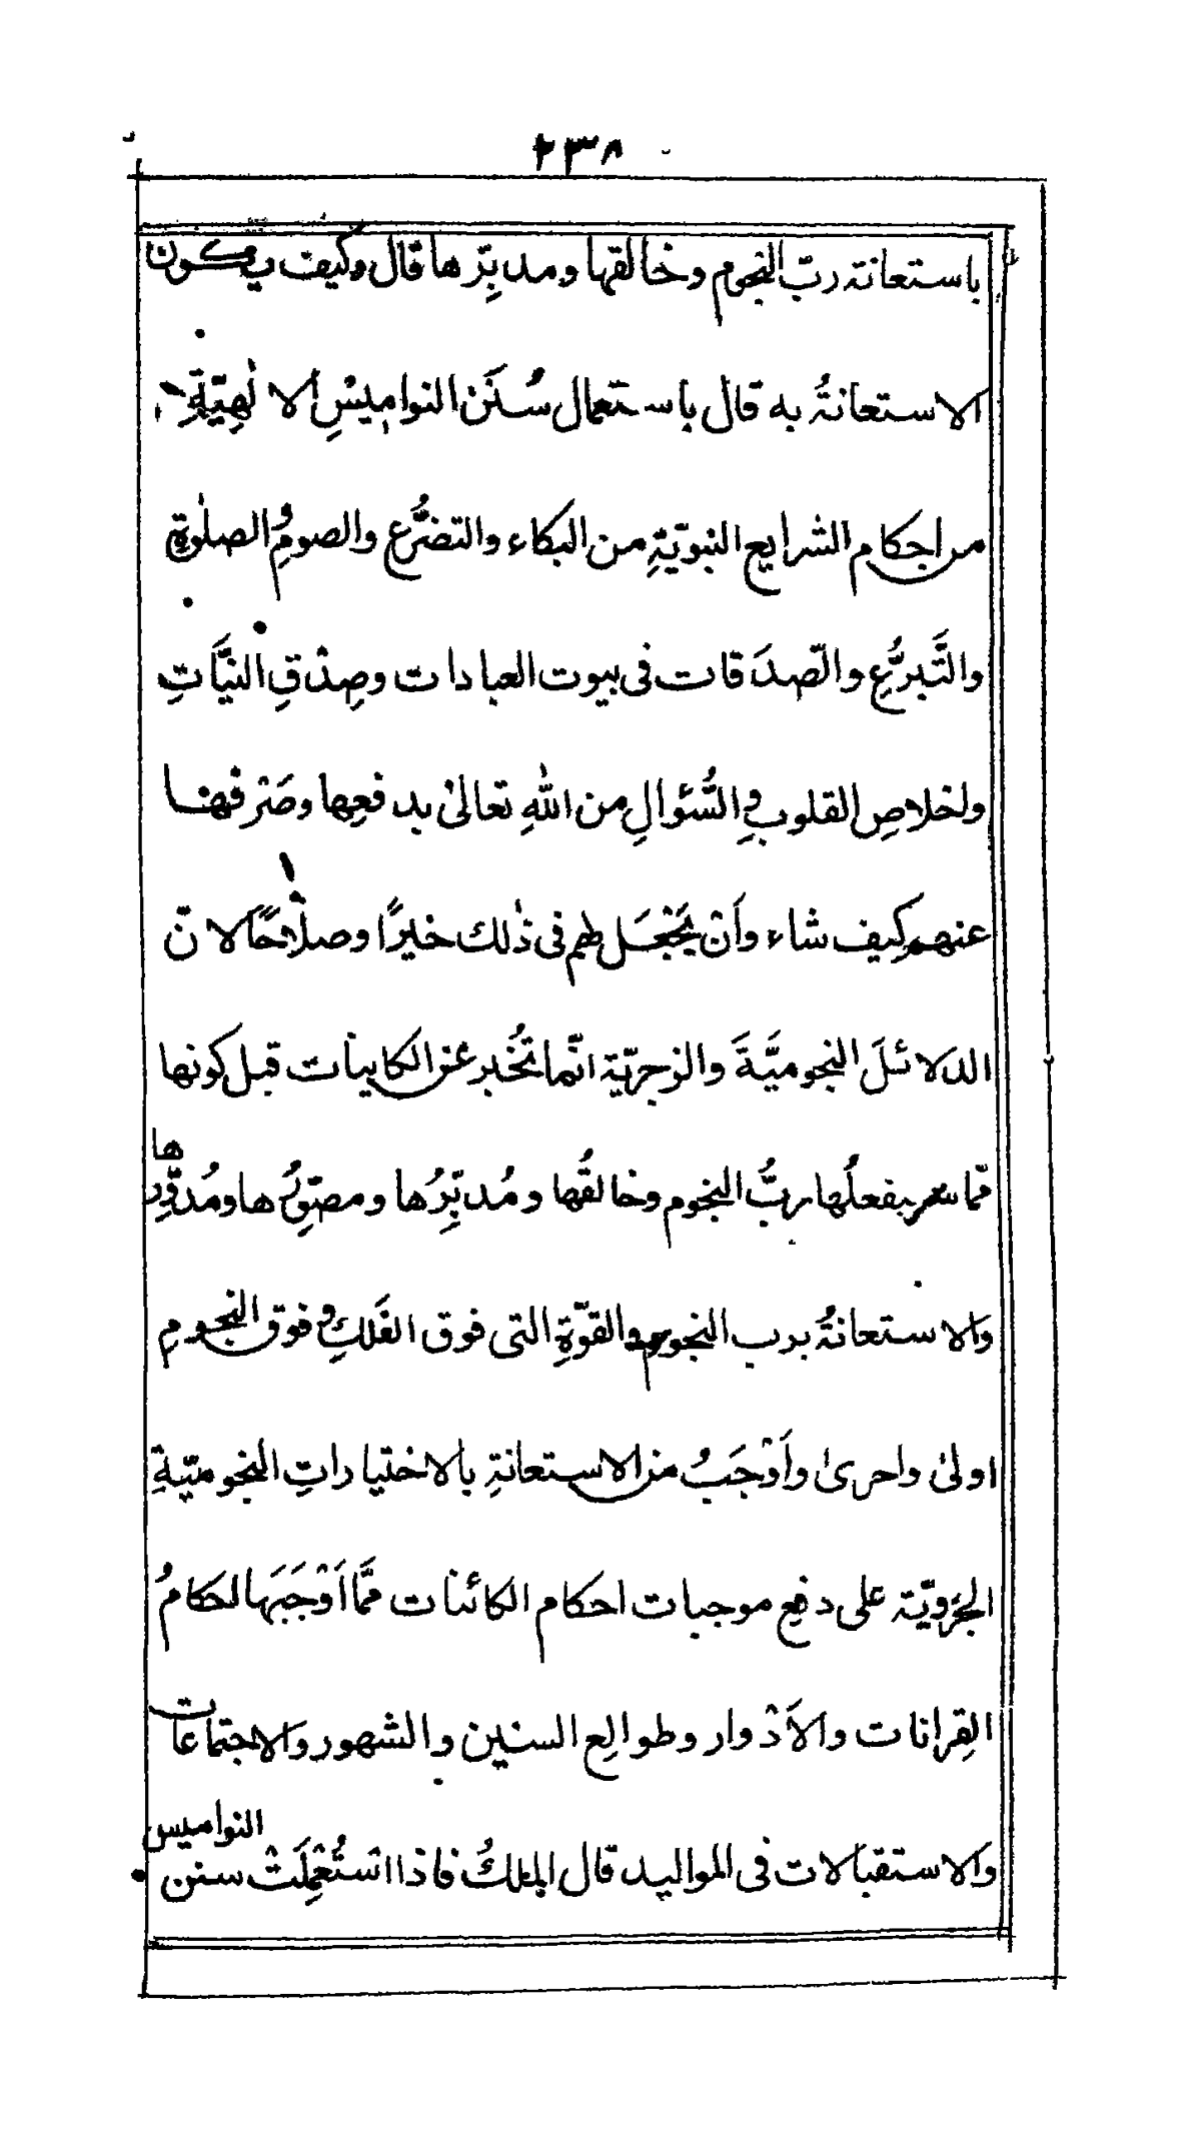 ٢٣٨
باستعانة ربّ النجوم وخالقها ومدبِّرها قال وكيف يكون
الاستعانةُ به قال باستعمال سُنَن النواميسِ الالٰهِيّةِ
من احكام الشرايع النبويّةِ من البكاء والتضرُّع والصومِ و الصلٰوةِ
والتَّبرُّعِ والصّدَقات فى بيوت العبادات وصِدْقِ النيَّاتِ
واخلاصِ القلوبِ و السُّؤالِ من اللهِ تعالىٰ بدفعِها وصَرْفِها
عنهم كيف شاء وأنْ يَجْعَل لهم فى ذٰلك خيرًا وصلاحًا لانّ
الدلائلَ النجوميَّةَ والزجريّة انّما تُخْبر عن الكاينات قبل كونها
ممّا سيفعلُها ربُّ النجوم وخالقُها ومُدبِّرُها ومصوّرُها ومُدوِّرها
والاستعانةُ برب النجوم والقوّةِ التى فوق الفَلكِ و فوق النجومِ
اولىٰ واحرىٰ وأوْجَبُ من الاستعانةِ بالاختياراتِ النجوميّةِ
الجزويّة على دفعِ موجبات احكام الكائنات ممَّا اَوْجَبَها احكامُ
القِرانات والأدْوار وطوالِع السنين والشهور والاجتماعات
والاستقبالات فى المواليد قال الملكُ فاذا اسْتُعْمِلَتْ سنن النواميس